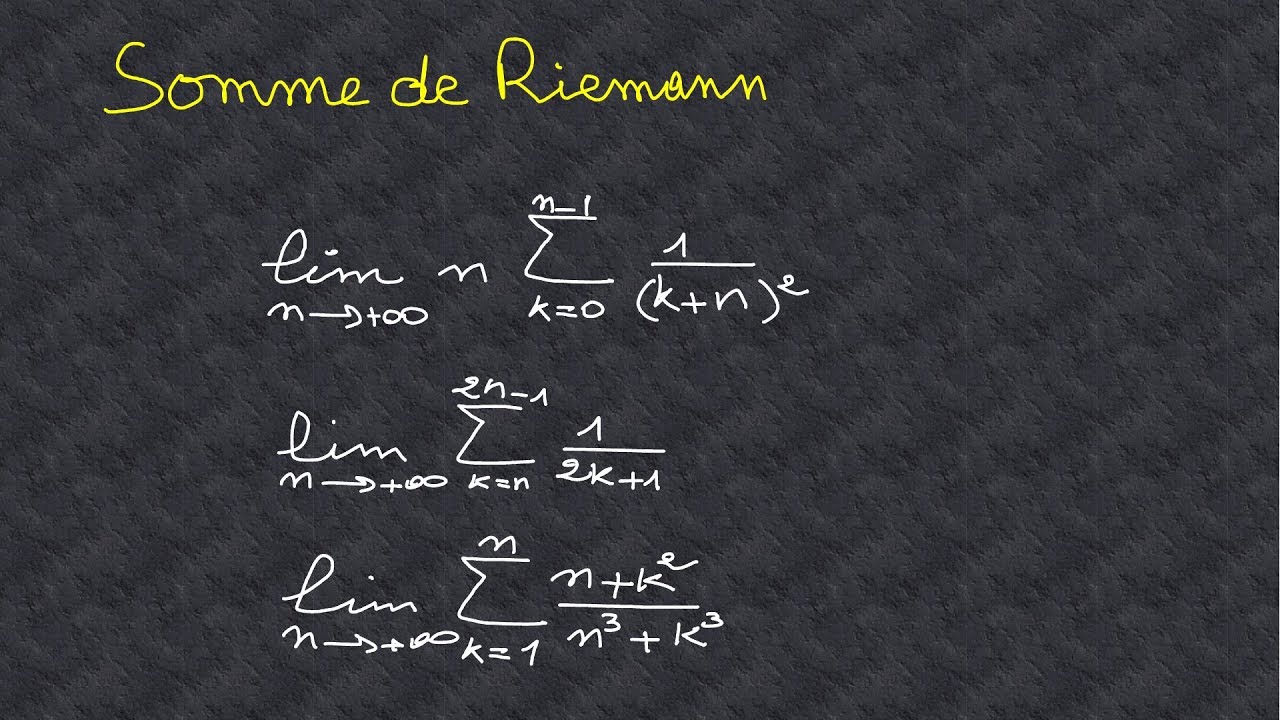 Somme de Riemann
lim n→+∞ n ∑_{k=0}^{n-1} 1/(k+n)²
lim n→+∞ ∑_{k=n}^{2n-1} 1/(2k+1)
lim n→+∞ ∑_{k=1}^{n} (n+k²)/(n³+k³)